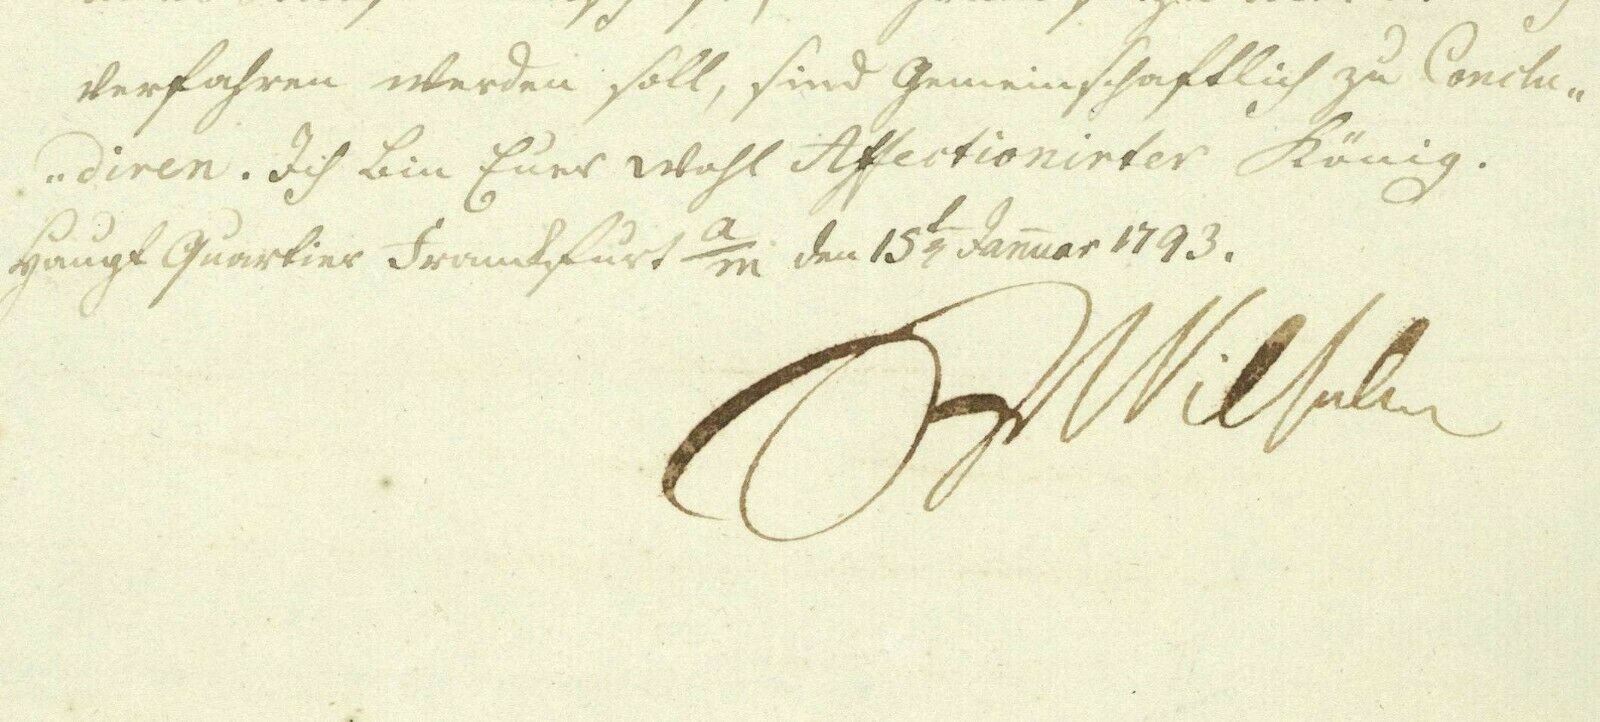 verfahren werden soll, sind Gemeinschaftlich zu Conclu„
„diren. Ich bin Euer wohl Affectionirter König.
Haupt Quartier Franckfurt a/m den 15t Januar 1793.
FrWilhelm